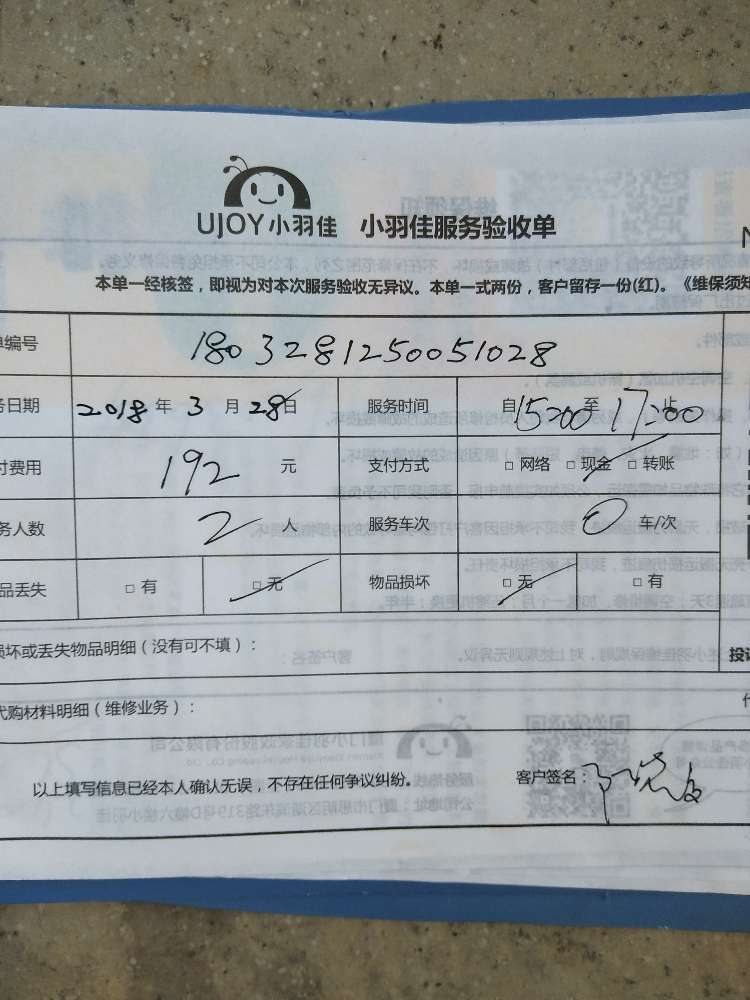 UJOY小羽佳 小羽佳服务验收单
本单一经核签，即视为对本次服务验收无异议。本单一式两份，客户留存一份(红)。《维保须知
单编号 1803281250051028
务日期 2018年 3 月 28日 服务时间 自15:00至17:00止
付费用 192 元 支付方式 □ 网络 □ 现金 □ 转账
务人数 2 人 服务车次 0 车/次
品丢失 □ 有 □ 无 物品损坏 □ 无 □ 有
损坏或丢失物品明细（没有可不填）：
投诉
代购材料明细（维修业务）：
以上填写信息已经本人确认无误，不存在任何争议纠纷。 客户签名：